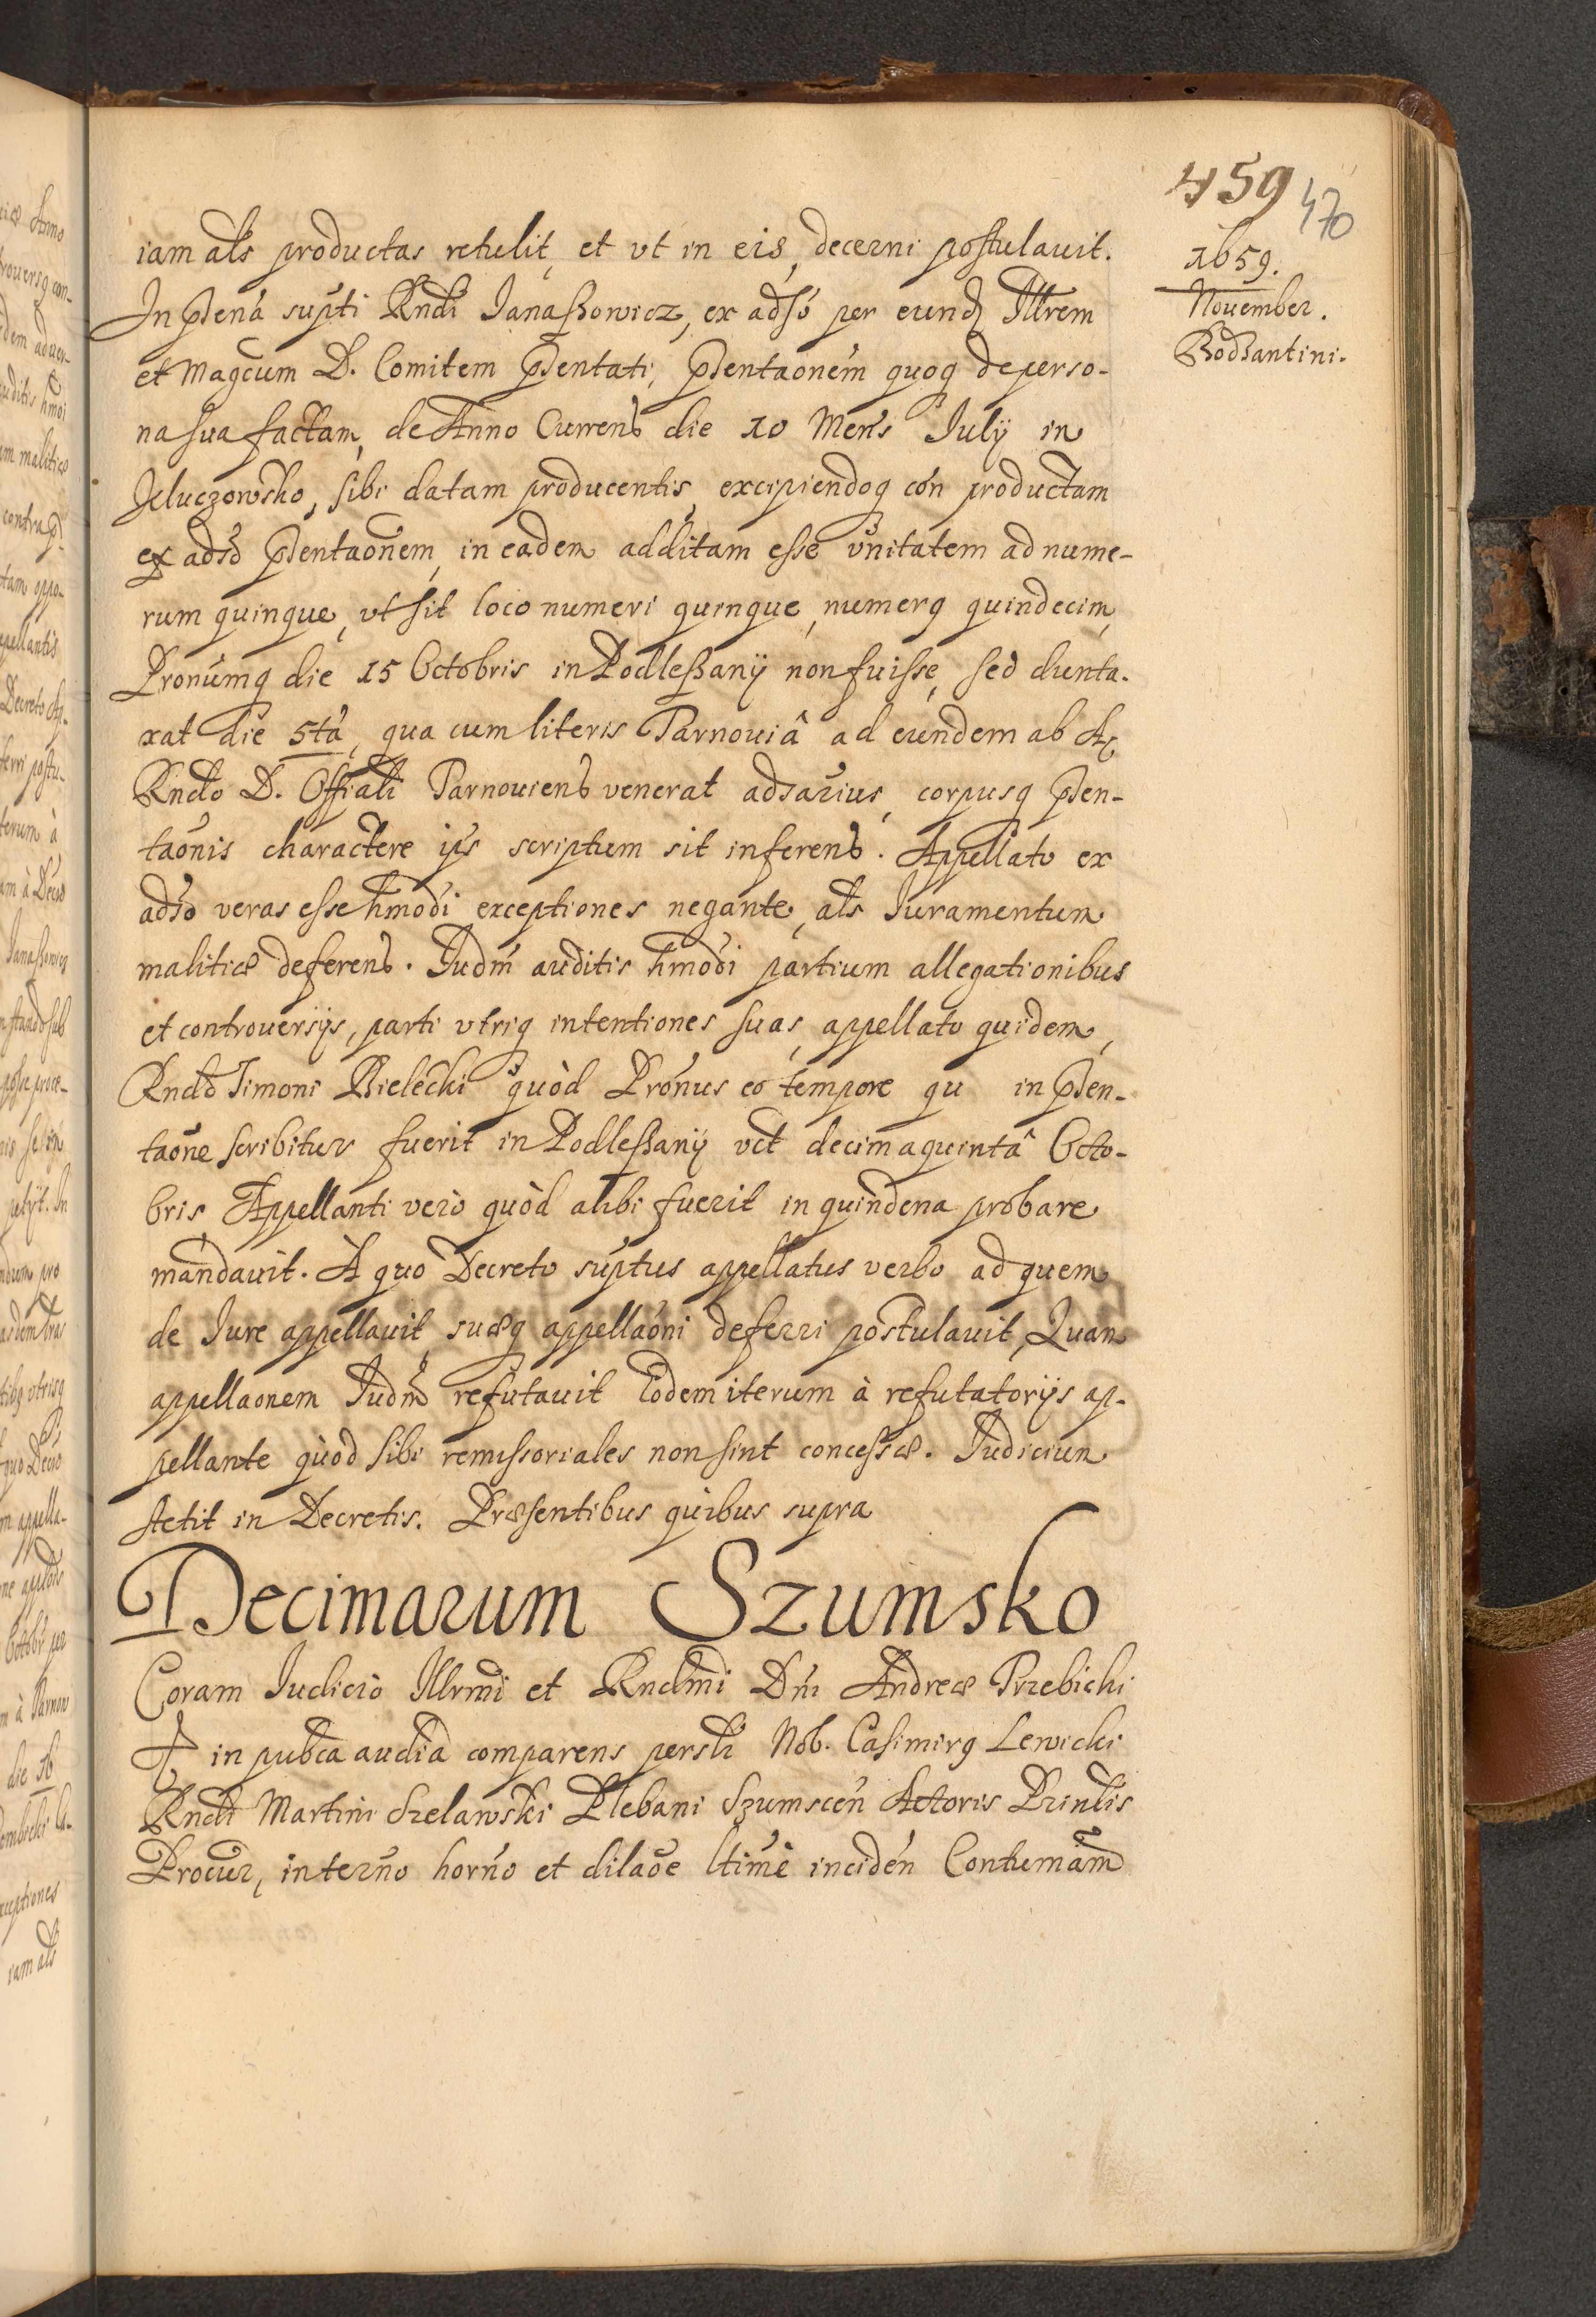 459
470
1659.
Nouember.
Bodzantini.
iam als productas retulit, et vt in eis, decerni postulauit.
In pñtia supti Rndi Janaszowicz, ex adso per eund Illrem
et Magcum D. Comitem pñtati, pñtaonem quoq de perso-
na sua factam, de Anno Currenb die 10 Mens July in
Kluczowsko, sibi datam producentis, excipiendoq con productam
ex adso pñtaonem, in eadem additam esse vnitatem ad nume-
rum quinque, vt sit loco numeri quinque, numerq quindecim,
Pronumq die 15 Octobris in Podleszany non fuisse, sed dunta-
xat die 5ta, qua cum literis Tarnouiâ ad eundem ab A
Rndo D. Offiali Tarnouienb venerat adsarius, corpusq pñ-
taonis charactere ips scriptum sit inferenb. Appellato ex
adso veras esse hmodi exceptiones negante, als Iuramentum
malitiæ deferenb. Iudm auditis hmodi partium allegationibus
et controuersijs, parti vtriq intentiones suas, appellato quidem,
Rndo Simoni Bielecki quòd Pronus eo tempore qu in pñ-
taone scribitur fuerit in Podleszany vct decima quintâ Octo-
bris Appellanti verò quòd alibi fuerit in quindena probare
mandauit. A quo Decreto suptus appellatus verbo ad quem
de Iure appellauit, suæq appellaoni deferri postulauit, Quam
appellaonem Iudm refutauit Eodem iterum à refutatorijs ap-
pellante quòd sibi remissoriales non sint concessæ. Iudicium
stetit in Decretis. Præsentibus quibus supra
Decimarum Szumsko
Coram Iudicio Illrmi et Rndmi Dni Andreæ Trzebicki
in pubca audia comparens persli Nob. Casimirq Lewicki
Rndi Martini Szelawski Plebani Szumscen Actoris Prinlis
Procur, in terno horno et dilaoe ltimè inciden Contumam